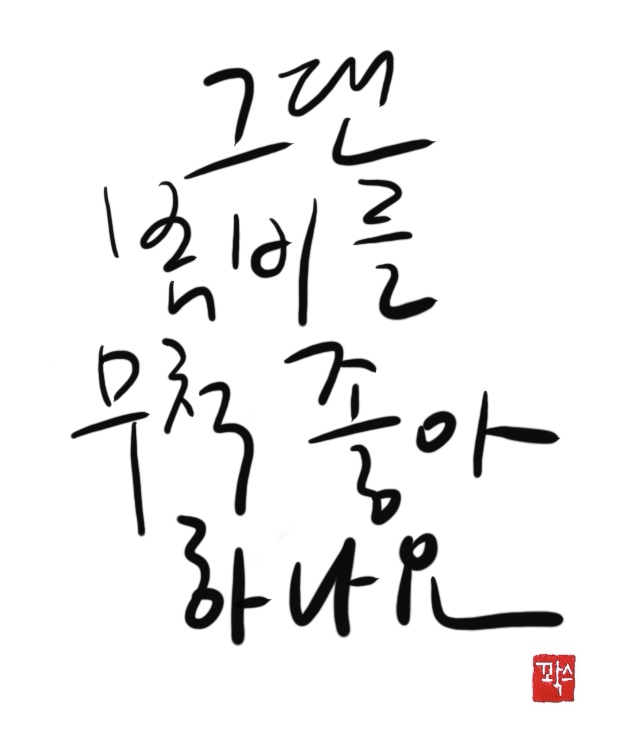 그댄
봄비를
무척 좋아
하나요
꽉스